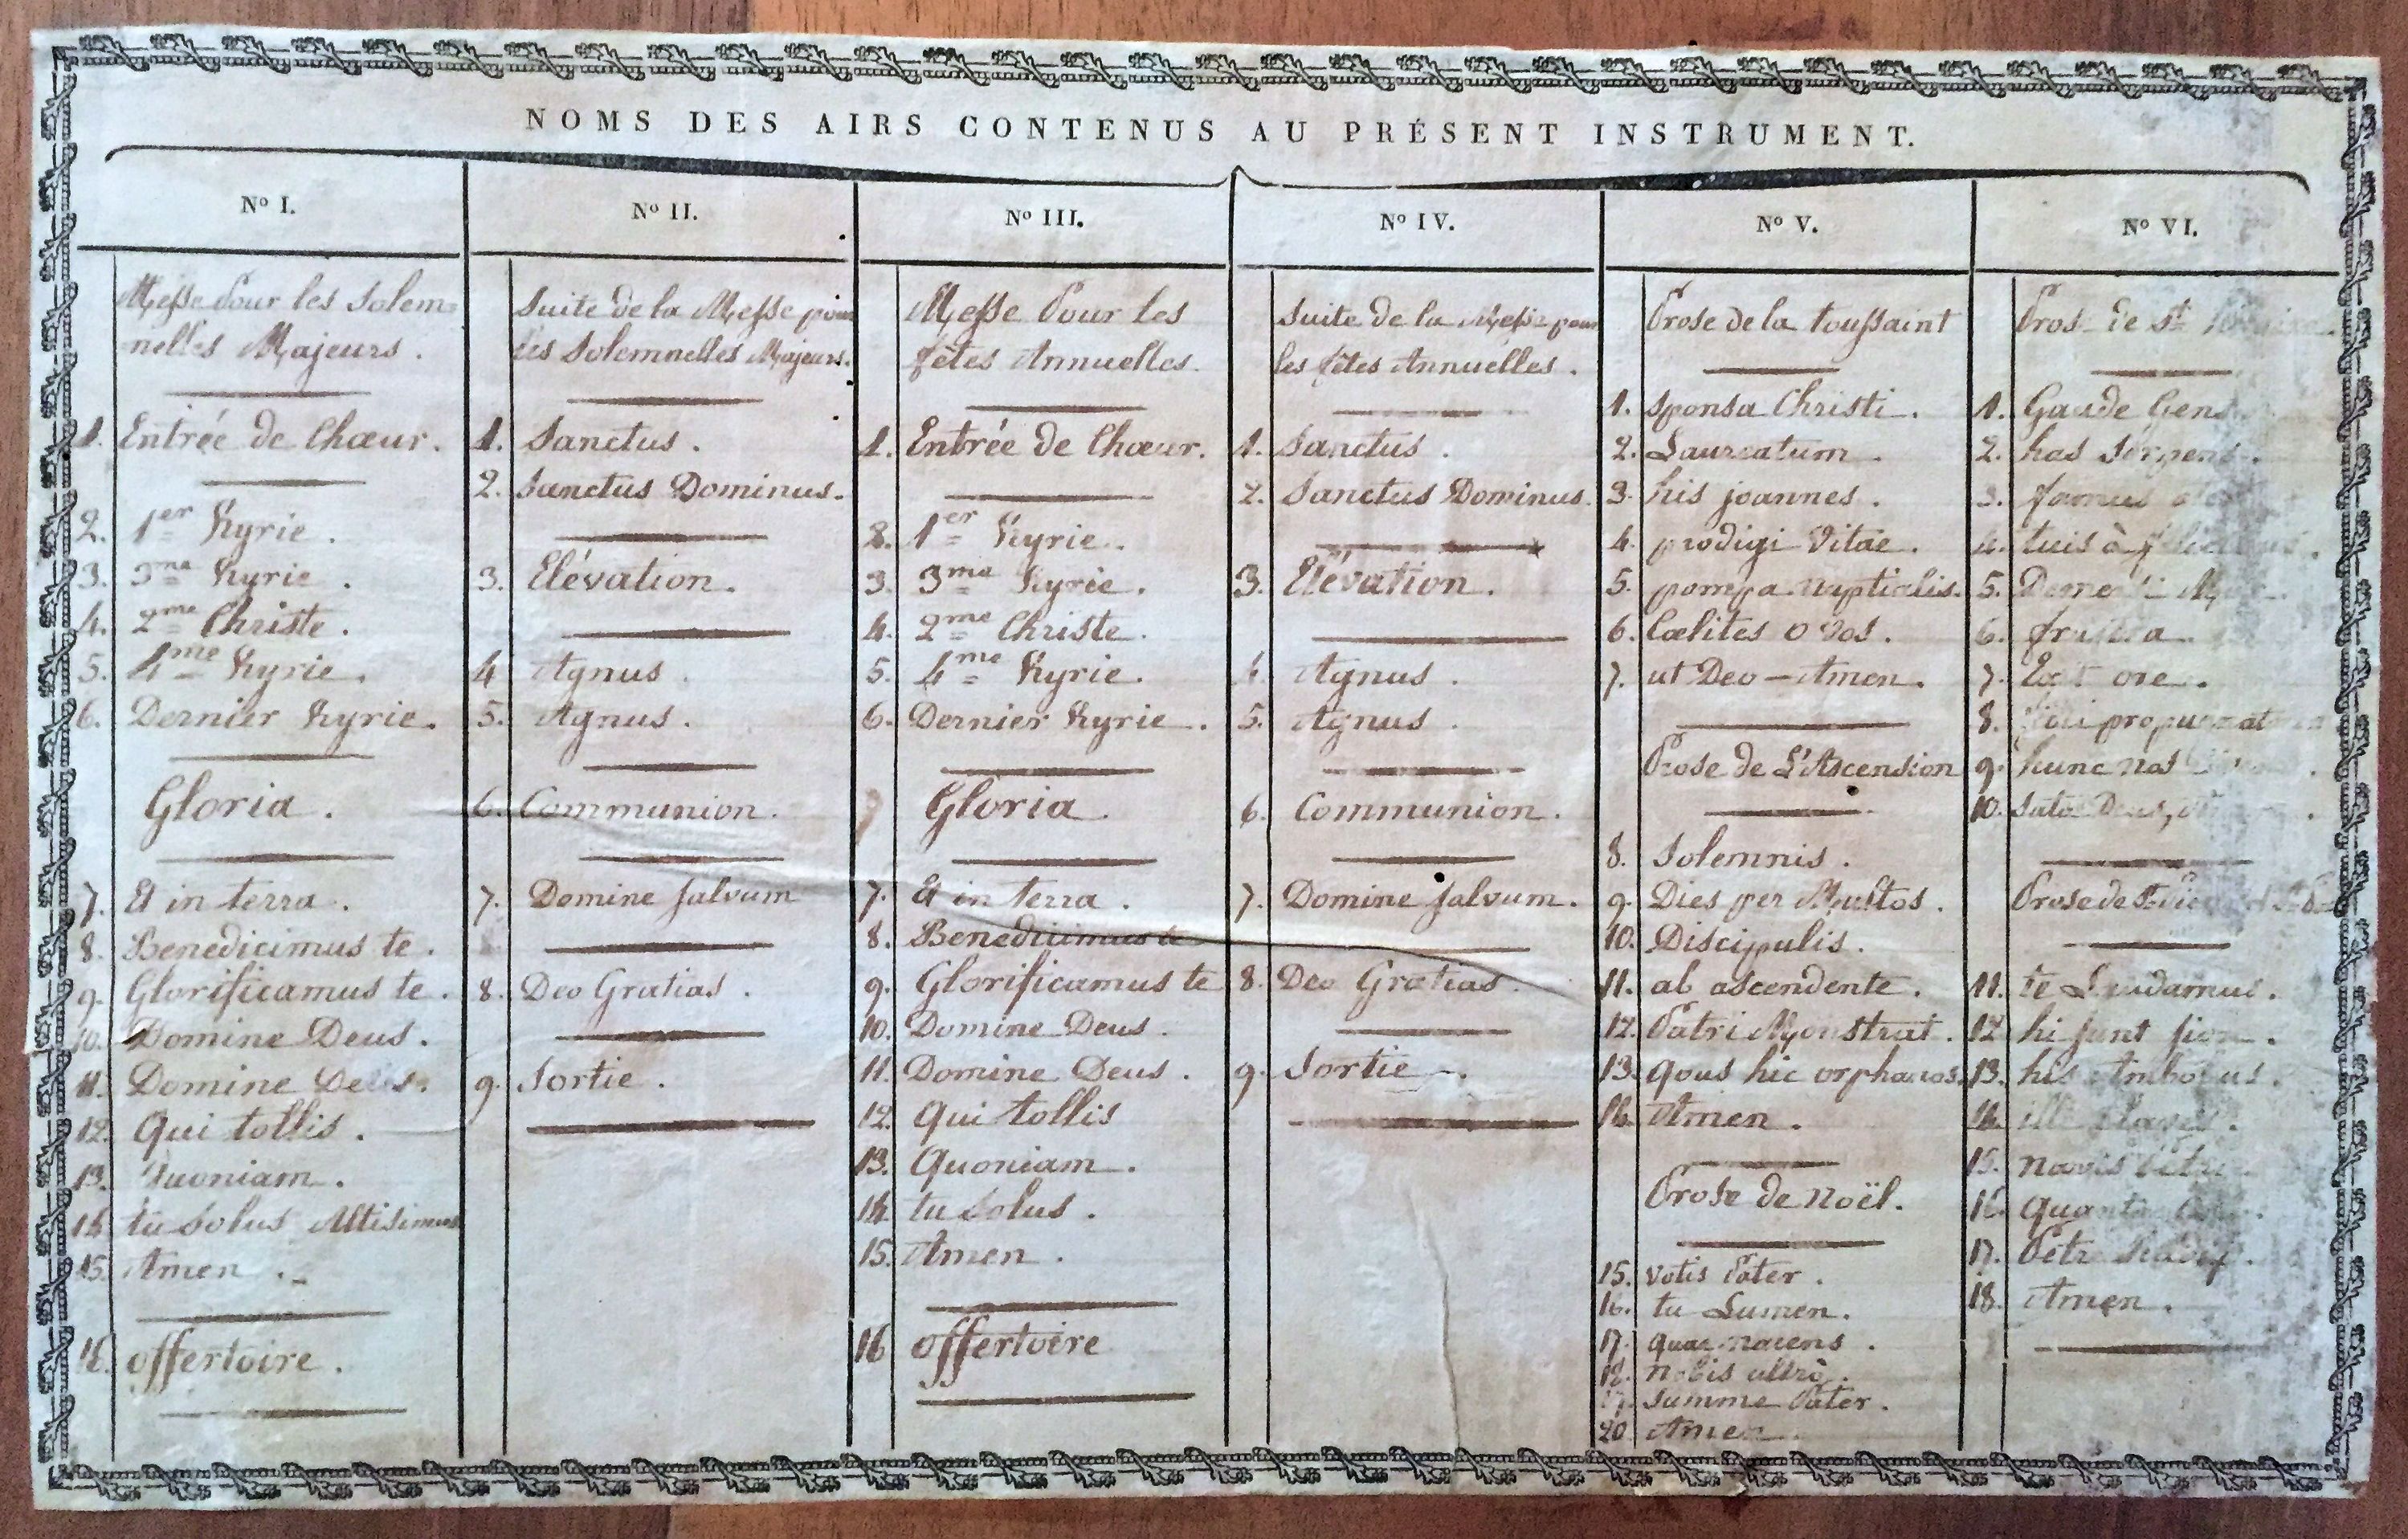 NOMS DES AIRS CONTENUS AU PRÉSENT INSTRUMENT.
Nº I.
Messe Pour les Solem=
nelles Majeurs.
1. Entrée de Chœur.
2. 1er Kyrie.
3. 3me Kyrie.
4. 2me Christe.
5. 4me Kyrie.
6. Dernier Kyrie.
Gloria.
7. Et in terra.
8. Benedicimus te.
9. Glorificamus te.
10. Domine Deus.
11. Domine Deus.
12. Qui tollis.
13. Quoniam.
14. tu Solus Altisimus
15. Amen.
16. offertoire.
Nº II.
Suite de la Messe pour
les Solemnelles Majeurs.
1. Sanctus.
2. Sanctus Dominus.
3. Elévation.
4 Agnus.
5. Agnus.
6. Communion.
7. Domine Salvum
8. Deo Gratias.
9. Sortie.
Nº III.
Messe Pour les
fêtes Annuelles.
1. Entrée de Chœur.
2. 1er Kyrie.
3. 3me Kyrie.
4. 2me Christe.
5. 4me Kyrie.
6. Dernier Kyrie.
Gloria.
7. Et in terra.
8. Benedicimus te
9. Glorificamus te
10. Domine Deus.
11. Domine Deus.
12. Qui tollis
13. Quoniam.
14. tu Solus.
15. Amen.
16 offertoire
Nº IV.
Suite de la Messe pour
les fêtes Annuelles.
1. Sanctus.
2. Sanctus Dominus.
3. Elévation.
4. Agnus.
5. Agnus.
6. Communion.
7. Domine Salvum.
8. Deo Gratias.
9. Sortie.
Nº V.
Prose de la toussaint
1. Sponsa Christi.
2. Laureatum.
3. his joannes.
4. prodigi Vitae.
5. pompa nuptialis.
6. Cœlites o Vos.
7. ut Deo - Amen.
Prose de L'Ascension
8. Solemnis.
9. Dies per Multos.
10. Discipulis.
11. ab ascendente.
12. Patri Monstrat.
13. qous hic orphanos.
14. Amen.
Prose de noël.
15. Votis Pater.
16. tu Lumen.
17. quae nacens.
18. Nobis ultrò.
19. Summe Pater.
20 Amen.
Nº VI.
Pros de St
1. Gaude Gens
2. has Serpens.
3.
4. tuis à
5.
6.
7. ore.
8.
9. hunc nos
10. Deus,
Prose de St
11. te Laudamus.
12 hi Sunt Sion.
13. his Ambobus.
14. ille
15. navis Petri
16.
17. Petre
18. Amen.